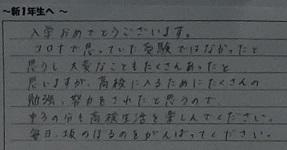 ～新1年生へ～
入学おめでとうございます。
コロナで思っていた受験ではなかったと
思うし、大変なこともたくさんあったと
思いますが、高校に入るためにたくさんの
勉強、努力をされたと思うので、
その分も高校生活を楽しんでください。
毎日、坂のぼるのをがんばってください。